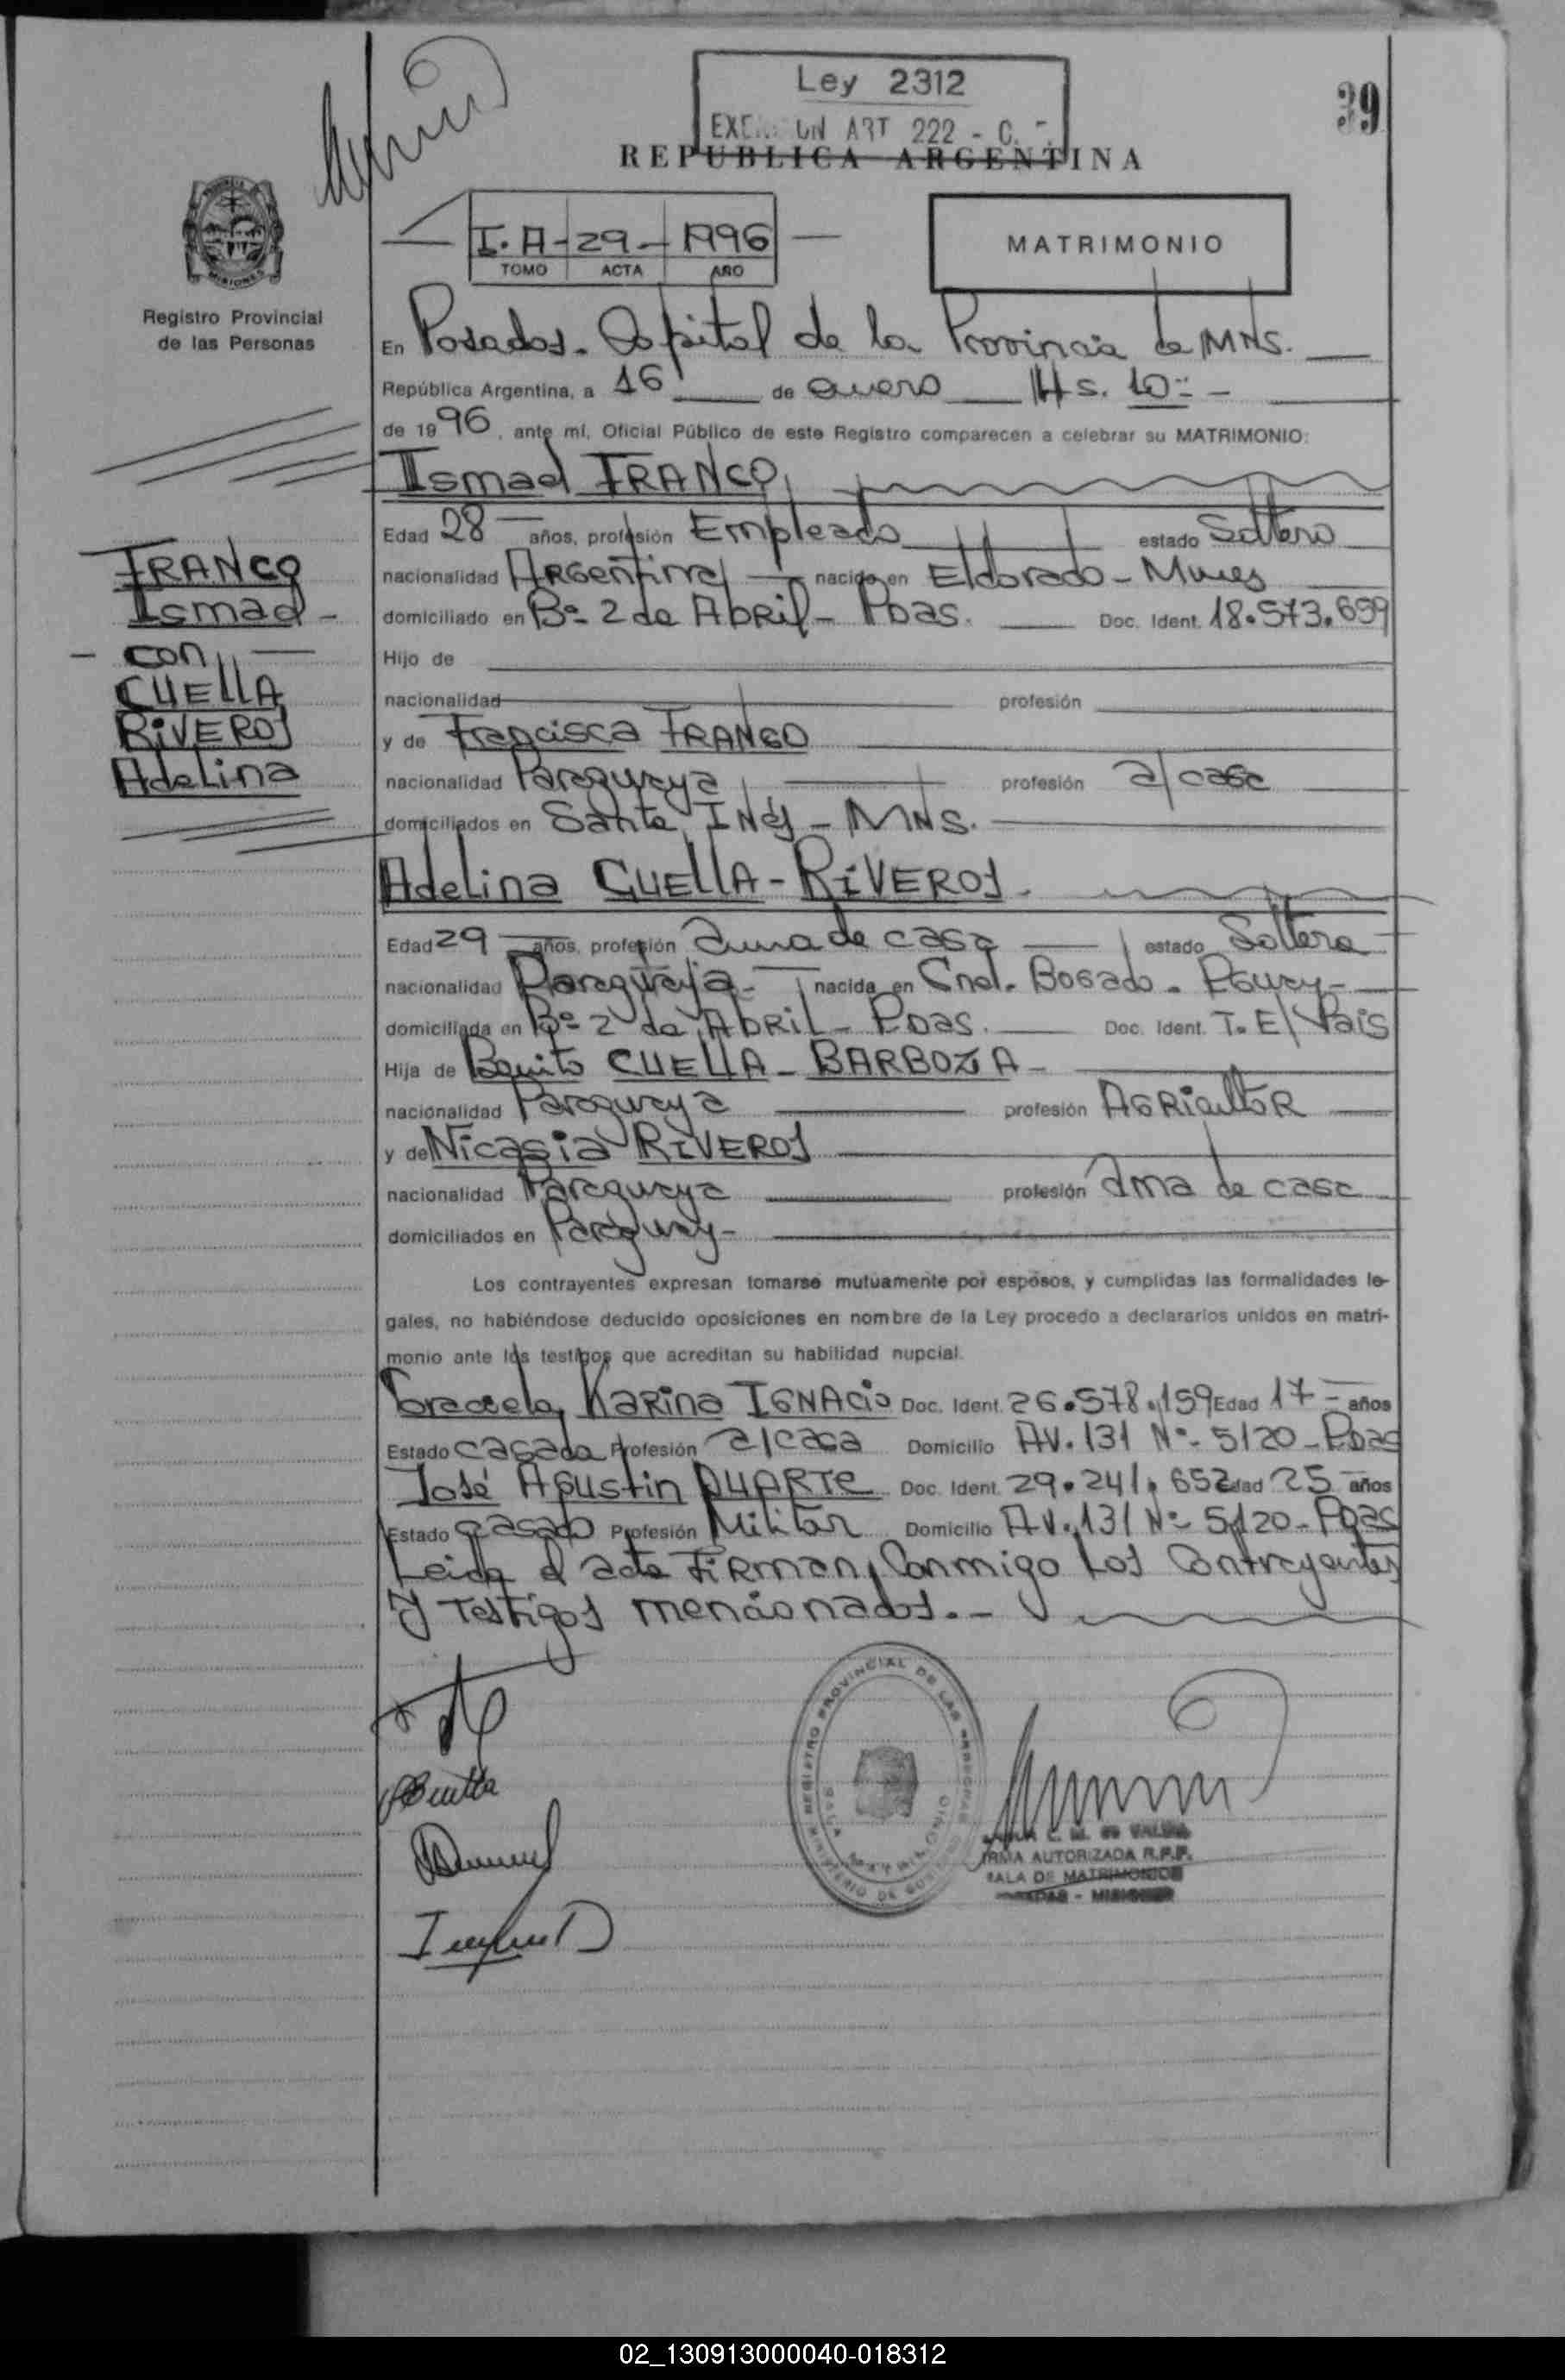 Ley 2312
ART 222 - C.
39
REPUBLICA ARGENTINA
I. A - 29 - 1996
TOMO ACTA AÑO
MATRIMONIO
MISIONES
Registro Provincial
de las Personas
En Posadas. Capital de la Provincia de MNS.
República Argentina, a 16 de enero Hs. 10:-
de 1996, ante mí, Oficial Público de este Registro comparecen a celebrar su MATRIMONIO:
Ismael FRANCO
Edad 28 años, profesión Empleado estado Soltero
nacionalidad Argentina nacido en Eldorado - Mnes
domiciliado en Bº 2 de Abril - Pdas. Doc. Ident. 18.573.659
Hijo de
nacionalidad profesión
y de Francisca FRANCO
nacionalidad Paraguaya profesión a/casa
domiciliados en Santa Inés - MNS.
FRANCO
Ismael -
- con -
CUELLA
RIVEROS
Adelina
Adelina CUELLA - RIVEROS -
Edad 29 años, profesión Ama de casa estado Soltera
nacionalidad Paraguaya - nacida en Cnel. Bogado - Pguay -
domiciliada en Bº 2 de Abril - Pdas. Doc. Ident. T. E/ País
Hija de Benito CUELLA - BARBOZA -
nacionalidad Paraguaya profesión AGRicultoR
y de Nicasia RIVEROS
nacionalidad Paraguaya profesión Ama de casa
domiciliados en Paraguay -
Los contrayentes expresan tomarse mutuamente por esposos, y cumplidas las formalidades le-
gales, no habiéndose deducido oposiciones en nombre de la Ley procedo a declararlos unidos en matri-
monio ante los testigos que acreditan su habilidad nupcial.
Graciela Karina IGNACIO Doc. Ident. 26.578.159 Edad 17 años
Estado casada Profesión a/casa Domicilio AV. 131 Nº 5120 - Pdas
José Agustin DUARTE Doc. Ident. 29.241.652 Edad 25 años
Estado casado Profesión Militar Domicilio AV. 131 Nº 5120 - Pdas
Leida el acta Firman Conmigo Los Contrayentes
y Testigos mencionados. -
REGISTRO PROVINCIAL DE LAS PERSONAS
MINISTERIO DE GOBIERNO
SALA MATRIMONIO
FIRMA AUTORIZADA R.P.P.
SALA DE MATRIMONIOS
POSADAS - MISIONES
02_130913000040-018312